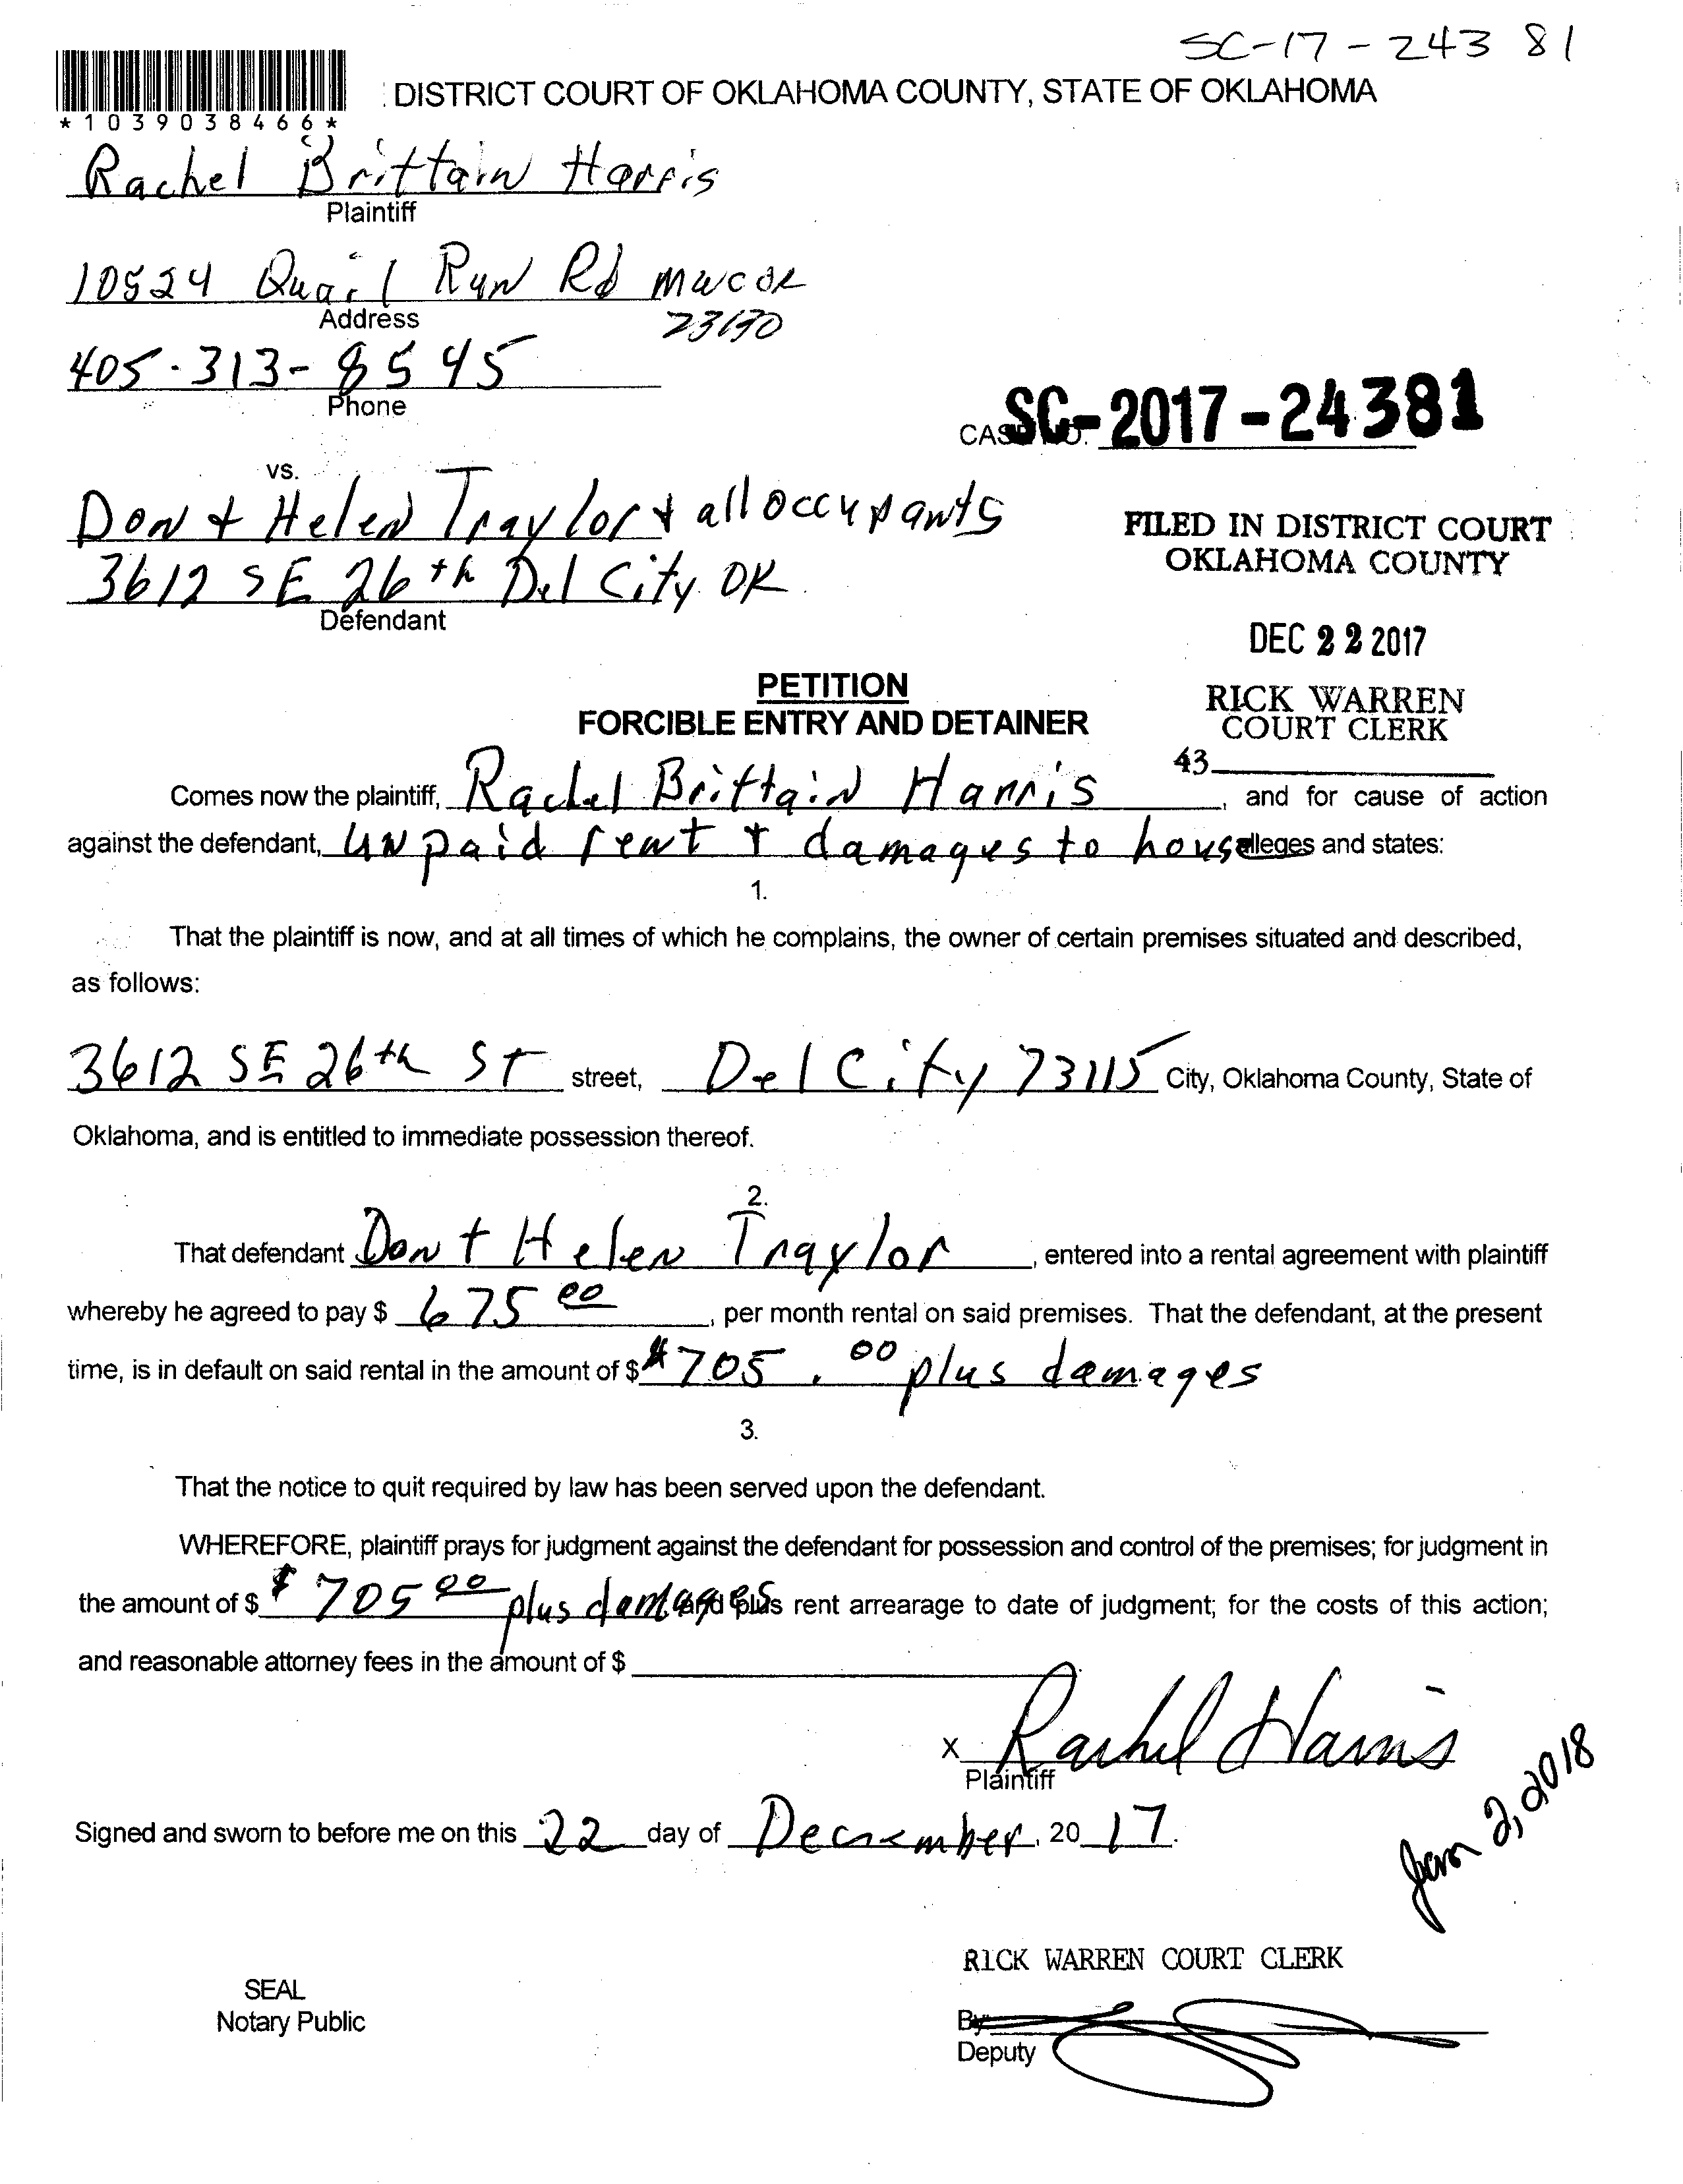 SC-17-24381
DISTRICT COURT OF OKLAHOMA COUNTY, STATE OF OKLAHOMA
*1039038466*
Rachel Brittain Harris
Plaintiff
10524 Quail Run Rd MWC OK
Address
73130
405-313-8545
Phone
CASE NO. SC-2017-24381
vs.
Don + Helen Traylor + all occupants
3612 SE 26th Del City OK
Defendant
FILED IN DISTRICT COURT
OKLAHOMA COUNTY
DEC 22 2017
RICK WARREN
COURT CLERK
43
PETITION
FORCIBLE ENTRY AND DETAINER
Comes now the plaintiff, Rachel Brittain Harris, and for cause of action
against the defendant, unpaid rent + damages to house alleges and states:
1.
That the plaintiff is now, and at all times of which he complains, the owner of certain premises situated and described,
as follows:
3612 SE 26th ST street, Del City 73115 City, Oklahoma County, State of
Oklahoma, and is entitled to immediate possession thereof.
2.
That defendant Don + Helen Traylor, entered into a rental agreement with plaintiff
whereby he agreed to pay $ 675 00, per month rental on said premises. That the defendant, at the present
time, is in default on said rental in the amount of $ $705.00 plus damages
3.
That the notice to quit required by law has been served upon the defendant.
WHEREFORE, plaintiff prays for judgment against the defendant for possession and control of the premises; for judgment in
the amount of $ $705 00 plus damages and plus rent arrearage to date of judgment; for the costs of this action;
and reasonable attorney fees in the amount of $
x Rachel Harris
Plaintiff
Jan 2, 2018
Signed and sworn to before me on this 22 day of December, 20 17.
RICK WARREN COURT CLERK
SEAL
Notary Public
By
Deputy